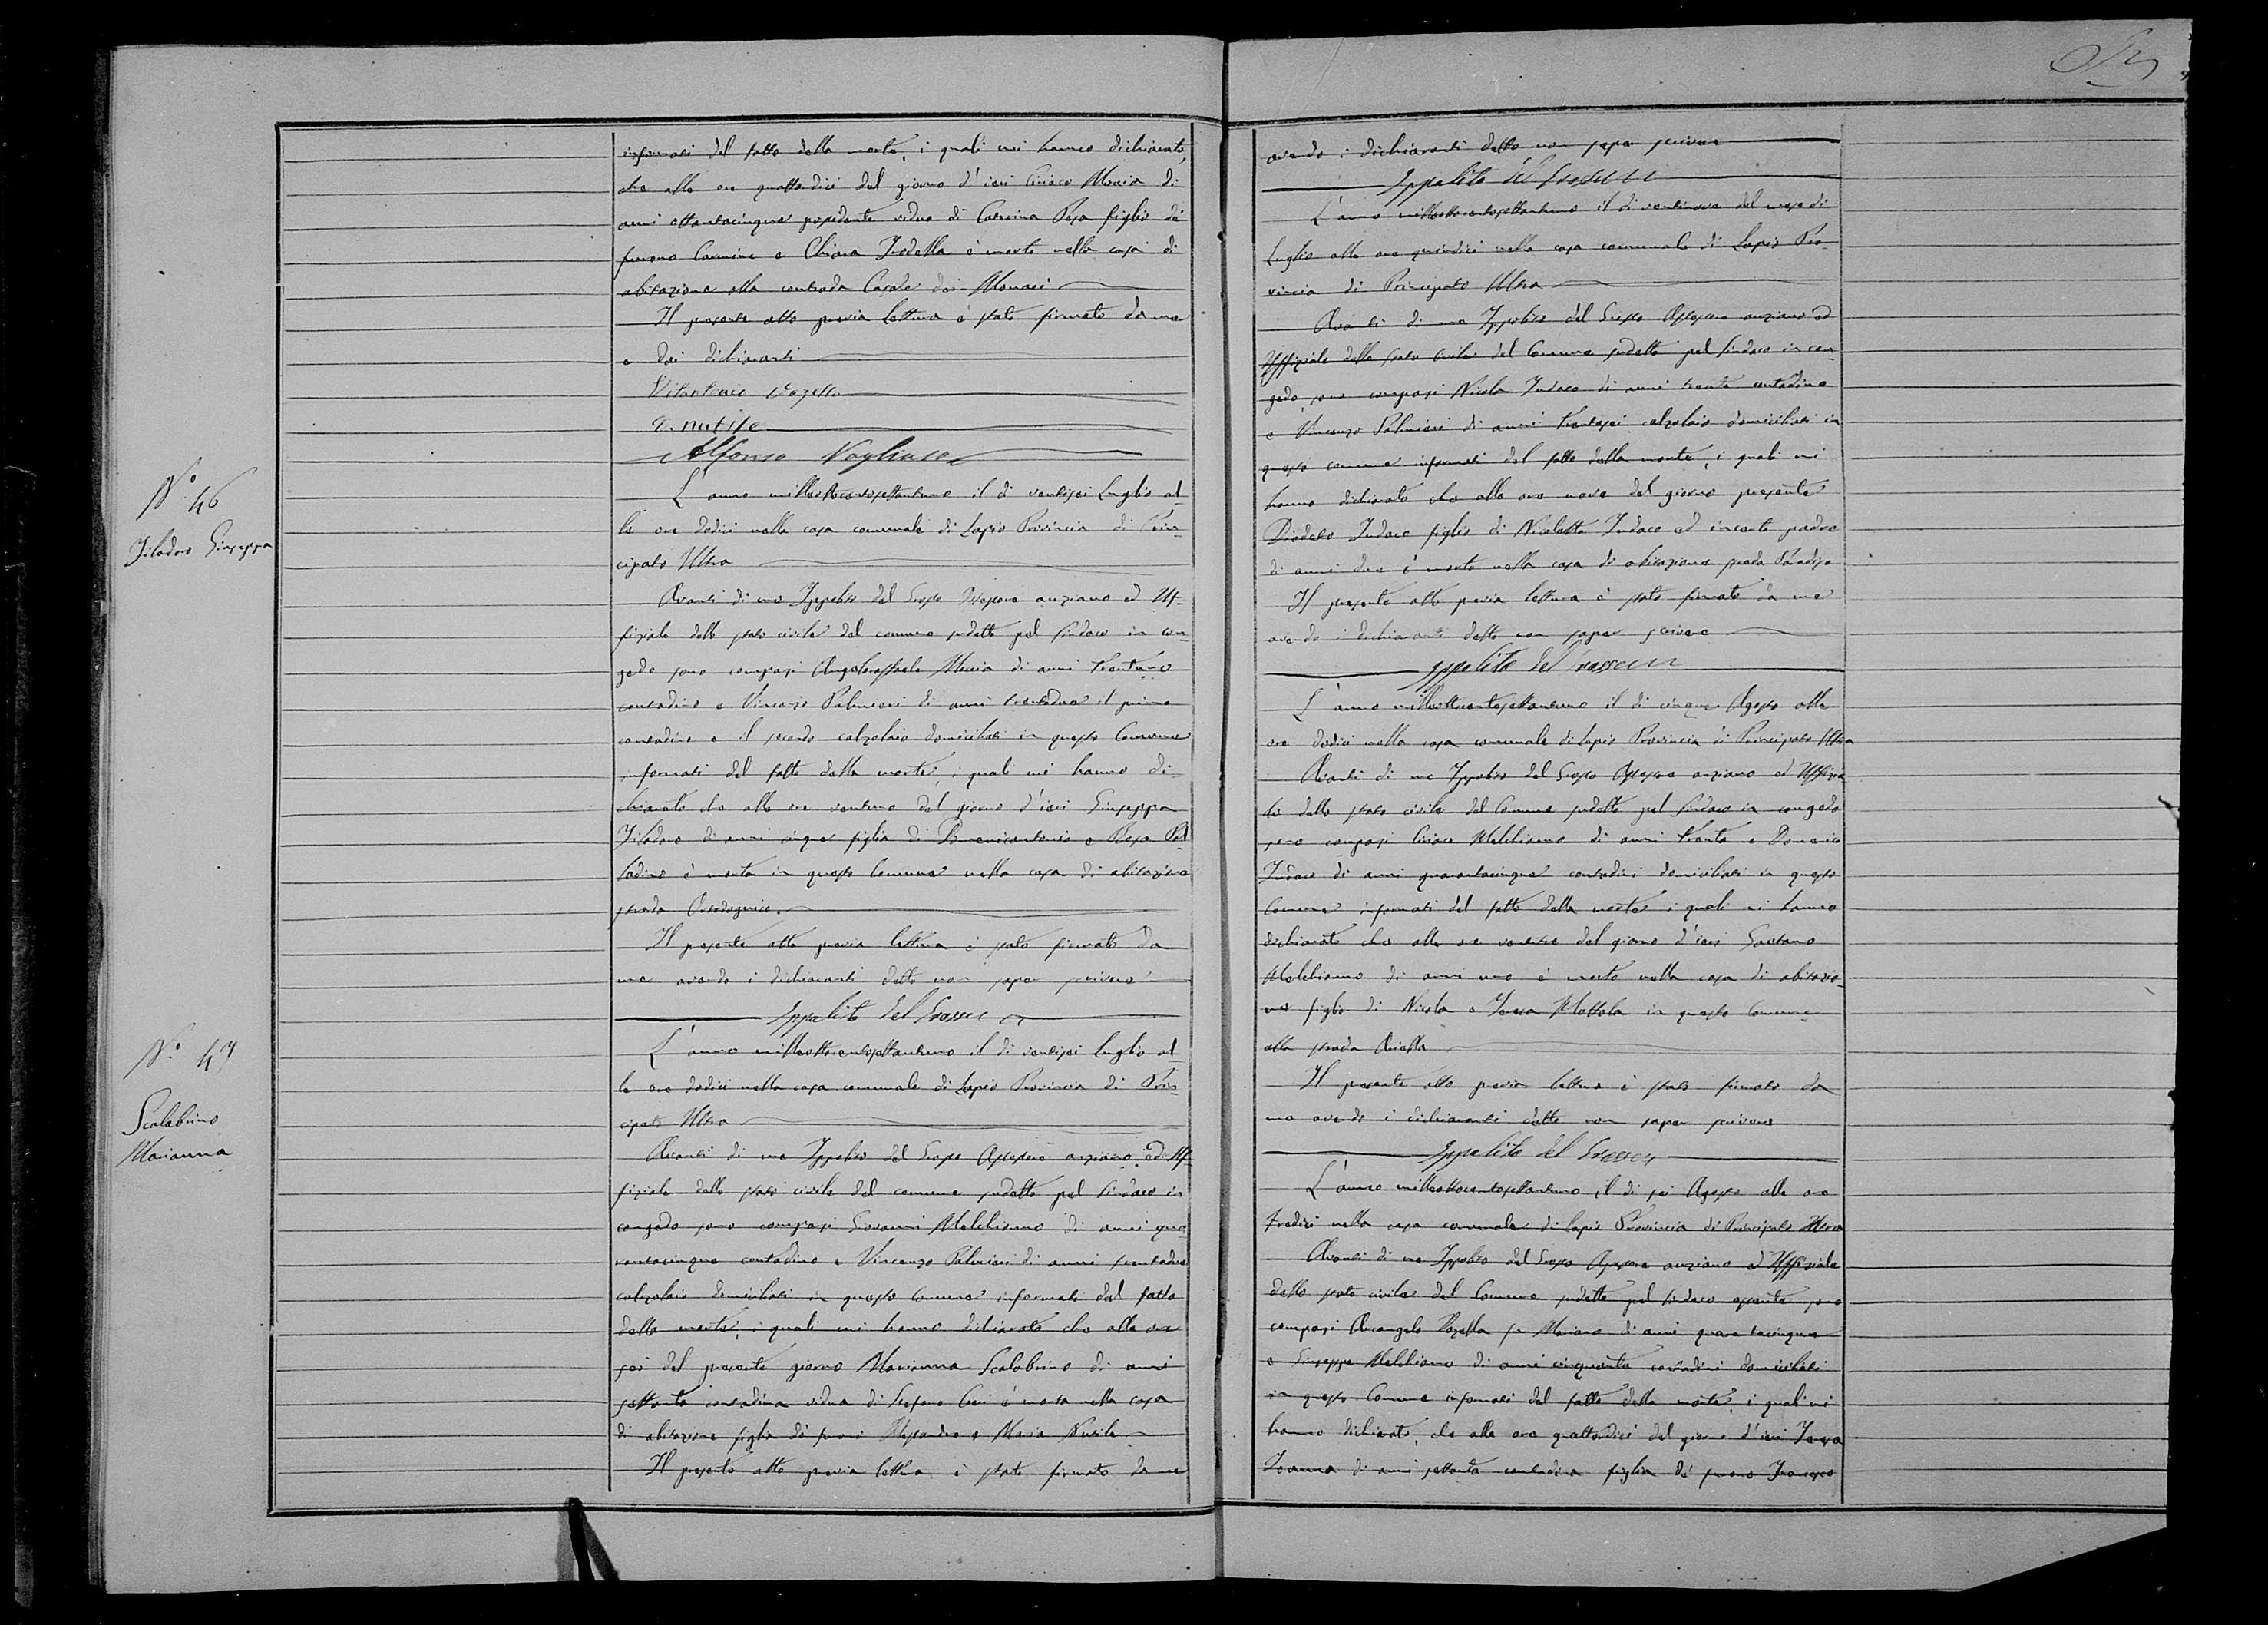 informati del fatto della morte, i quali mi hanno dichiarato,
che alle ore quattordici del giorno d'ieri Ciriaco Muccia di
anni ottantacinque possidente viduo di Caterina Pesa figlio dei
furono Carmine e Chiara è morto nella casa di
abitazione alla contrada Casale dei Monaci
Il presente atto previa lettura è stato firmato da me
e dai dichiaranti
Vitantonio
Alfonso
N.° 46
Giuseppa
L'anno milleottocentosettantuno il di ventisei Luglio al-
le ore dodici nella casa comunale di Lapio Provincia di Prin-
cipato Ultra
Avanti di me Ippolito del Grosso Assessore anziano ed Uf-
fiziale dello stato civile del comune sudetto pel Sindaco in con-
gedo sono comparsi Angeloraffaele Muccia di anni trentuno
contadino e Vincenzo Palmieri di anni trentadue il primo
contadino e il secondo calzolaio domiciliati in questo Comune
informati del fatto della morte, i quali mi hanno di-
chiarato che alle ore ventuno del giorno d'ieri Giuseppa
di anni cinque figlia di Domenicantonio e Rosa Pal-
ladino è morta in questo Comune nella casa di abitazione
strada
Il presente atto previa lettura è stato firmato da
me avendo i dichiaranti detto non saper scrivere
Ippolito del Grosso
N.° 47
Scalabrino
Marianna
L'anno milleottocentosettantuno il di ventisei Luglio al-
le ore dodici nella casa comunale di Lapio Provincia di Prin-
cipato Ultra
Avanti di me Ippolito del Grosso Assessore anziano ed Uf-
fiziale dello stato civile del comune sudetto pel Sindaco in
congedo sono comparsi Giovanni Melchionno di anni qua-
rantacinque contadino e Vincenzo Palmieri di anni trentadue
calzolaio domiciliati in questo Comune informati del fatto
della morte, i quali mi hanno dichiarato che alle ore
sei del presente giorno Marianna Scalabrino di anni
settanta contadina vidua di Stefano è morta nella casa
di abitazione figlia dei furono Alessandro e Maria
Il presente atto previa lettura è stato firmato da me
avendo i dichiaranti detto non saper scrivere
Ippolito del Grosso
L'anno milleottocentosettantuno il di ventinove del mese di
Luglio alle ore quindici nella casa comunale di Lapio Pro-
vincia di Principato Ultra
Avanti di me Ippolito del Grosso Assessore anziano ed
Uffiziale dello stato civile del Comune sudetto pel Sindaco in con-
gedo, sono comparsi Nicola Iudaco di anni trenta contadino
e Vincenzo Palmieri di anni calzolaio domiciliati in
questo comune informati del fatto della morte, i quali mi
hanno dichiarato che alle ore nove del giorno presente
Diodato Iudaco figlio di Nicoletta Iudaco ed incerto padre
di anni due è morto nella casa di abitazione strada Paradiso
Il presente atto previa lettura è stato firmato da me
avendo i dichiaranti detto non saper scrivere
Ippolito del Grosso
L'anno milleottocentosettantuno il di cinque Agosto alle
ore dodici nella casa comunale di Lapio Provincia di Principato Ultra
Avanti di me Ippolito del Grosso Assessore anziano ed Uffizia
le dello stato civile del Comune sudetto pel Sindaco in congedo
sono comparsi Ciriaco Melchionno di anni trenta e Domenico
Iudaco di anni quarantacinque contadini domiciliati in questo
Comune informati del fatto della morte i quali mi hanno
dichiarato che alle ore ventitre del giorno d'ieri Gaetano
Melchionno di anni uno è morto nella casa di abitazio-
ne figlio di Nicola e Mottola in questo Comune
alla strada
Il presente atto previa lettura è stato firmato da
me avendo i dichiaranti detto non saper scrivere
Ippolito del Grosso
L'anno milleottocentosettantuno il di sei Agosto alle ore
tredici nella casa comunale di Lapio Provincia di Principato Ultra
Avanti di me Ippolito del Grosso Assessore anziano ed Uffiziale
dello stato civile del Comune sudetto pel Sindaco assente sono
comparsi Arcangelo fu Mariano di anni quarantacinque
e Giuseppe Melchionno di anni cinquanta contadini domiciliati
in questo Comune informati del fatto della morte, i quali mi
hanno dichiarato, che alle ore quattordici del giorno d'ieri
di anni settanta contadina figlia dei furono Francesco